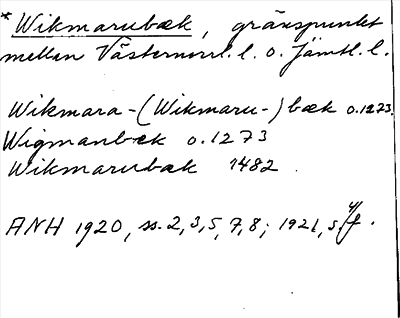 *Wikmarubæk, gränspunkt
mellan Västernorrl. l. o. Jämtl. l.
Wikmara-(Wikmaru-)bæk o.1273.
Wigmanbæk o.1273
Wikmarubak 1482.
ANH 1920, ss. 2, 3, 5, 7, 8; 1921, s.